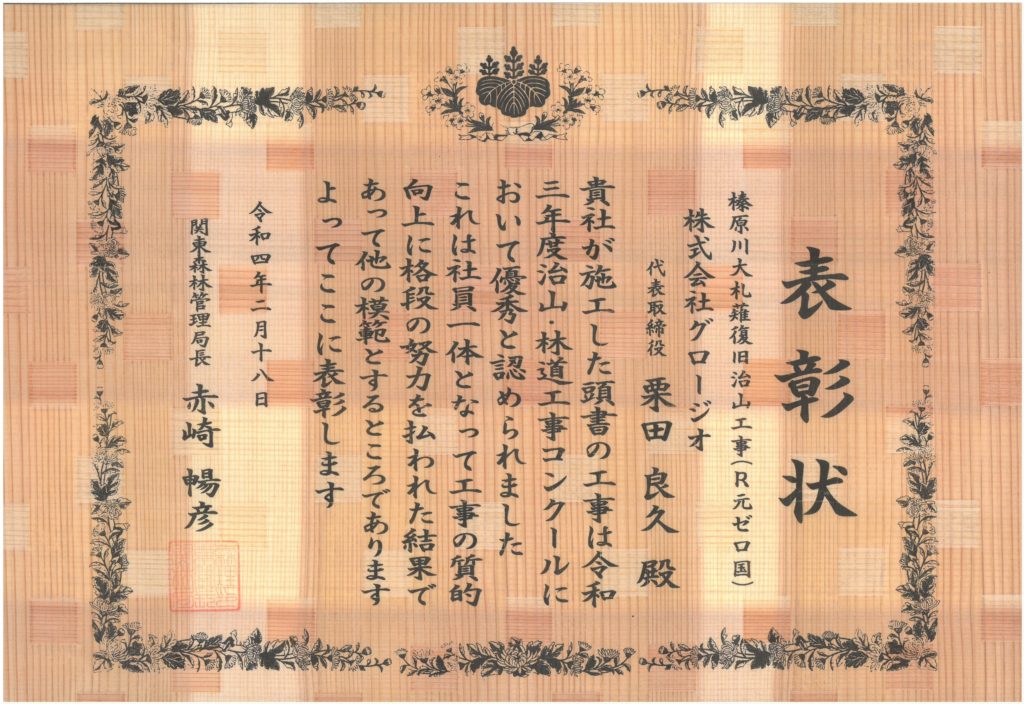 表彰状
榛原川大札薙復旧治山工事(R元ゼロ国)
株式会社グロージオ
代表取締役 栗田良久 殿
貴社が施工した頭書の工事は令和
三年度治山・林道工事コンクールに
おいて優秀と認められました
これは社員一体となって工事の質的
向上に格段の努力を払われた結果で
あって他の模範とするところであります
よってここに表彰します
令和四年二月十八日
関東森林管理局長 赤崎暢彦